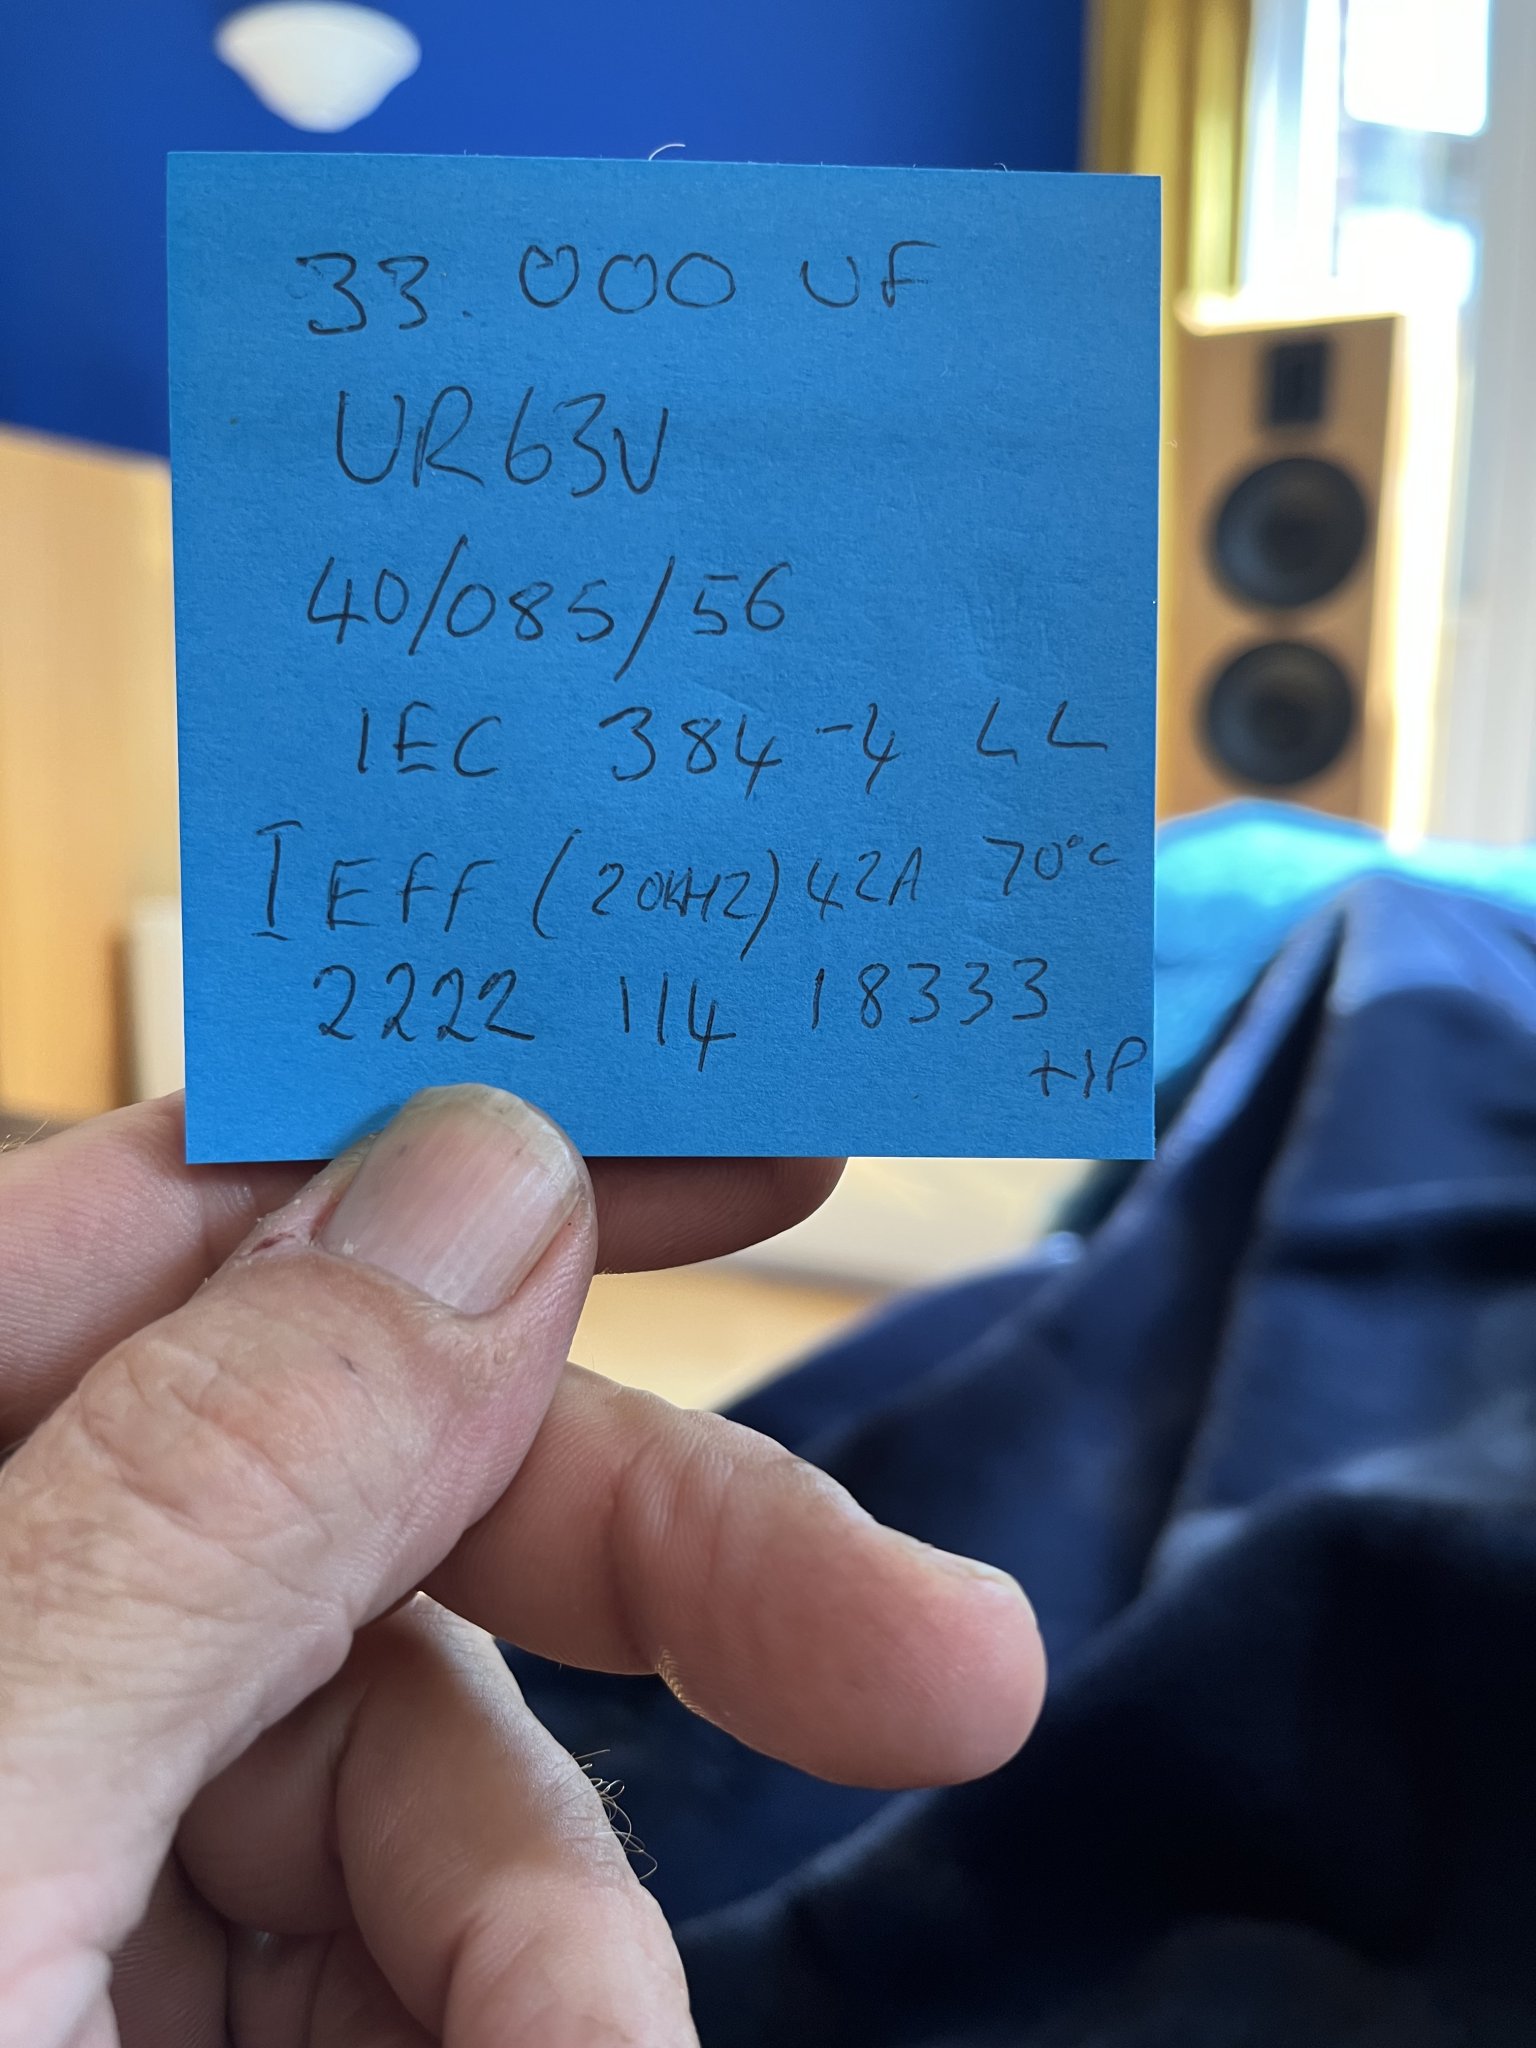 33.000 UF
UR63V
40/085/56
IEC 384-4 LL
I EFF (20KHZ) 42A 70°C
2222 114 18333
+1P